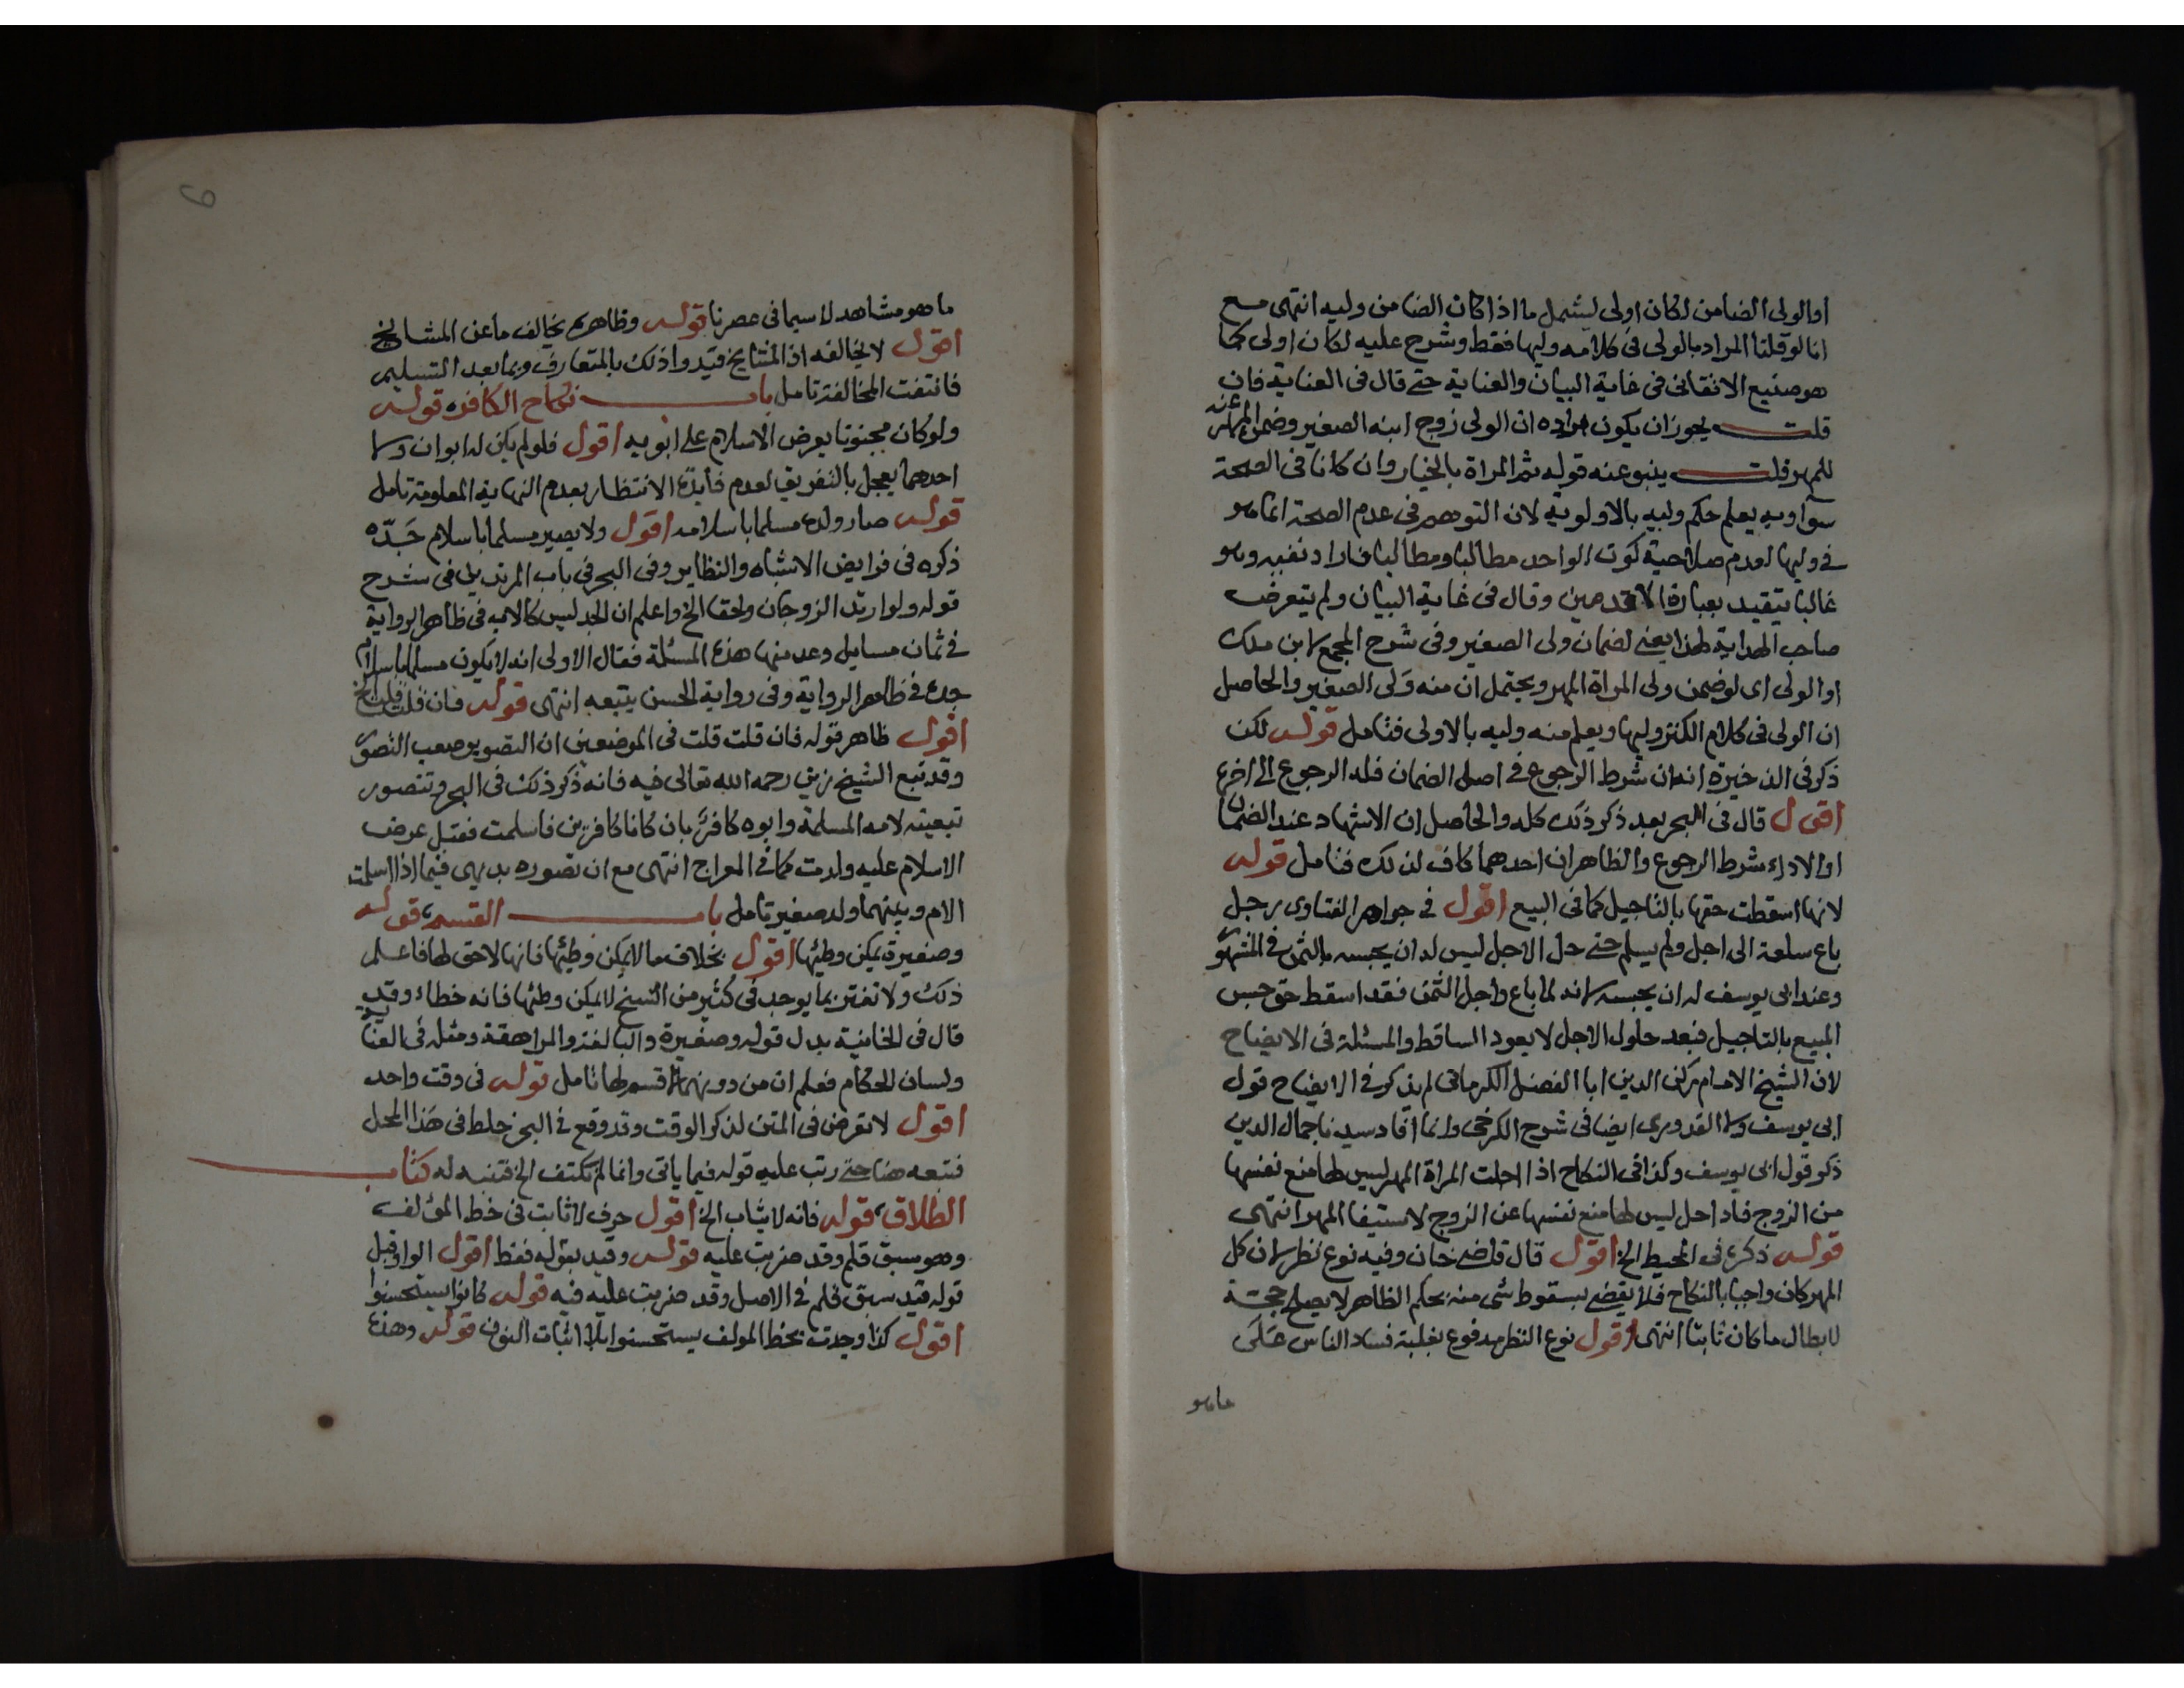 او الولى الضامن لكان اولى ليشمل ما اذا كان الضامن وليه انتهى مع
انا لو قلنا المراد بالولى فى كلامه وليها فقط وشرح عليه لكان اولى كما
هو صنيع الاتقانى فى غاية البيان والعناية حتى قال فى العناية فان
قلت يجوز ان يكون مراده ان الولى زوج ابنه الصغير وضمن عنه
للمهر قلت ينبو عنه قوله ثم المراة بالخيار وان كانا فى الصحة
سوا وبه يعلم حكم وليه بالاولوية لان التوهم فى عدم الصحة انما هو
فى وليها لعدم صلاحية كون الواحد مطالبا ومطالبا فاراد نفيه وهو
غالبا يتقيد بعبارة الاقدمين وقال فى غاية البيان ولم يتعرض
صاحب الهداية لهذا يعنى لضمان ولى الصغير وفى شرح المجمع لابن ملك
او الولى اى لو ضمن ولى المراة المهر ويحتمل ان منه ولى الصغير والحاصل
ان الولى فى كلام الكنز وليها ويعلم منه وليه بالاولى فتامل قوله لكن
ذكر فى الذخيرة انه ان شرط الرجوع فى اصل الضمان فله الرجوع الى اخره
اقول قال فى البحر بعد ذكر ذلك كله والحاصل ان الاشهاد عند الضمان
او الاداء شرط الرجوع والظاهر ان احدهما كاف لذلك فتامل قوله
لانها اسقطت حقها بالتاجيل كما فى البيع اقول فى جواهر الفتاوى رجل
باع سلعة الى اجل ولم يسلم حتى حل الاجل ليس له ان يحبسه بالثمن فى المشهور
وعند ابى يوسف له ان يحبسه لانه لما باع واجل الثمن فقد اسقط حق حبس
المبيع بالتاجيل فبعد حلول الاجل لا يعود الساقط والمسئلة فى الايضاح
لان الشيخ الامام ركن الدين ابا الفضل الكرمانى لم يذكر فى الايضاح قول
ابى يوسف ولا القدورى ايضا فى شرح الكرخى وانما افاد سيدنا جمال الدين
ذكر قول ابى يوسف وكذا فى النكاح اذا احلت المراة المهر ليس لها منع نفسها
من الزوج فاد احل ليس لها منع نفسها عن الزوج لاستيفا المهر انتهى
قوله ذكره فى المحيط الخ اقول قال قاضى خان وفيه نوع نظر لان كل
المهر كان واجبا بالنكاح فلا يقضى بسقوط شى منه بحكم الظاهر لا يصلح حجة
لابطال ما كان ثابتا انتهى اقول نوع النظر مدفوع بغلبة فساد الناس على
ماهو
ما هو مشاهد لا سيما فى عصرنا قوله وظاهره يخالف ما عن المشايخ
اقول لا يخالفه اذ المشايخ قيدوا ذلك بالمتعارف وبما بعد التسليم
فانتفت المخالفة تامل باب نكاح الكافر قوله
ولو كان مجنونا يعرض الاسلام على ابويه اقول فلو لم يكن له ابوان ولا
احدهما يعجل بالتفريق لعدم فايدة الانتظار بعدم النهاية المعلومة تامل
قوله صار ولده مسلما باسلامه اقول ولا يصير مسلما باسلام جده
ذكره فى فرايض الاشباه والنظاير وفى البحر فى باب المرتدين فى شرح
قوله ولو ارتد الزوجان ولحقا الخ واعلم ان الجد ليس كالاب فى ظاهر الرواية
فى ثمان مسايل وعد منها هذه المسئلة فقال الاولى انه لا يكون مسلما باسلام
جده فى ظاهر الرواية وفى رواية الحسن يتبعه انتهى قوله فان قلت قلت الخ
اقول ظاهر قوله فان قلت قلت فى الموضعين ان التصوير صعب التصور
وقد تبع الشيخ زين رحمه الله تعالى فيه فانه ذكر ذلك فى البحر وتتصور
تبعيته لامه المسلمة وابوه كافر بان كانا كافرين فاسلمت فقبل عرض
الاسلام عليه ولدت كما فى المعراج انتهى مع ان تصوره بديهى فيما اذا اسلمت
الام وبينهما ولد صغير تامل باب القسم قوله
وصغيرة يمكن وطيها اقول بخلاف ما لا يمكن وطيها فانها لا حق لها فاعلم
ذلك ولا تغتر بما يوجد فى كثير من النسخ لا يمكن وطئها فانه خطاء وقد
قال فى الخانية بدل قوله وصغيرة والبالغة والمراهقة ومثله فى العناية
ولسان الحكام فعلم ان من دونهما لا قسم لها تامل قوله فى وقت واحد
اقول لا تعرض فى المتن لذكر الوقت وقد وقع فى البحر خلط فى هذا المحل
فتبعه هنا حتى رتب عليه قوله فيما ياتى وانما لم نكتف الخ فتنبه له كتاب
الطلاق قوله فانه لا يثاب الخ اقول حرف لا ثابت فى خط المؤلف
وهو سبق قلم وقد ضربت عليه قوله وقيد بقوله فقط اقول الواو قبل
قوله قيد سبق قلم فى الاصل وقد ضربت عليه فيه قوله كانوا يستحسنوا
اقول كذا وجدت بخط المولف يستحسنوا بلا اثبات النون قوله وهذه